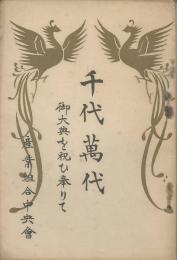 千代萬代
御大典を祝ひ奉りて
産業組合中央會